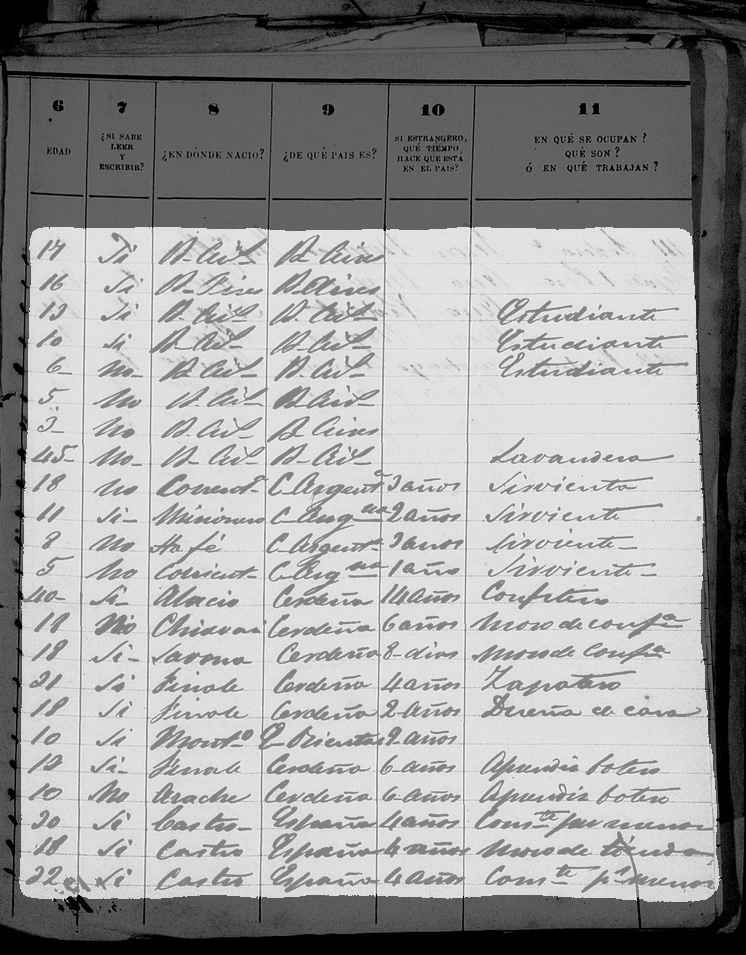 6 7 8 9 10 11
EDAD ¿SI SABE LEER Y ESCRIBIR? ¿EN DÓNDE NACIO? ¿DE QUÉ PAIS ES? SI ESTRANGERO, QUÉ TIEMPO HACE QUE ESTÁ EN EL PAIS? EN QUÉ SE OCUPAN? QUÉ SON? Ó EN QUÉ TRABAJAN?
17 Si B. Ais B. Aires
16 Si B. Aires B. Aires
13 Si B. Ais B. Ais Estudiante
10 si B. Ais B. Ais Estudiante
6 No B. Ais B. Ais Estudiante
5 No B. Ais B. Ais
3 No B. Ais B. Aires
45 No B. Ais B. Ais Lavandera
18 no Corrent.s C. Argent.a 3 años Sirvienta
11 Si Misiones C. Arg.na 2 años Sirviente
8 No Sta fé C. Argent.a 3 anos sirviente
5 No Corrient.s C. Arg.na 1 año Sirviente
40 Si Alacio Cerdeña 14 años Confitero
18 No Chiavari Cerdeña 6 años Moso de conf.a
18 Si Savona Cerdeña 8 dias Moso de Conf.a
21 Si Finale Cerdeña 4 años Zapatero
18 Si Finale Cerdeña 2 años Dueña de casa
10 Si Mont.o E. Oriental 2 años
12 Si Finale Cerdeña 6 años Aprendis botero
10 No Cerdeña 6 años Aprendis botero
30 Si Castro España 4 años Com.te por menor
18 Si Castro España 4 años Moso de tienda
22 Si Castro España 4 años Com.te p.r menor